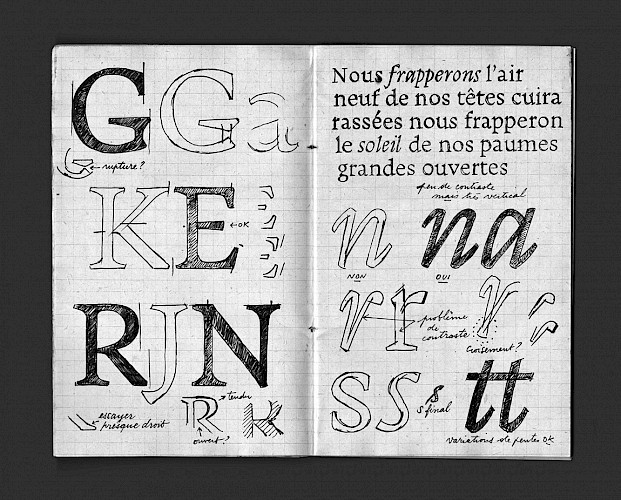 GGa
rupture?
KE
OK
RJN
essayer
presque droit
R k
tendu
ouvert?
Nous frapperons l'air
neuf de nos têtes cuira
rassées nous frapperon
le soleil de nos paumes
grandes ouvertes
peu de contraste
mais très vertical
n na
NON OUI
r r r
problème
de
contraste
croisement?
SS s
s final
tt
variations de pentes OK